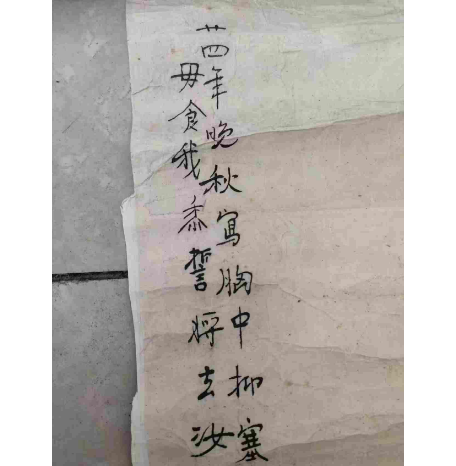 廿四年晚秋寫胸中抑塞
毋食我黍誓將去汝